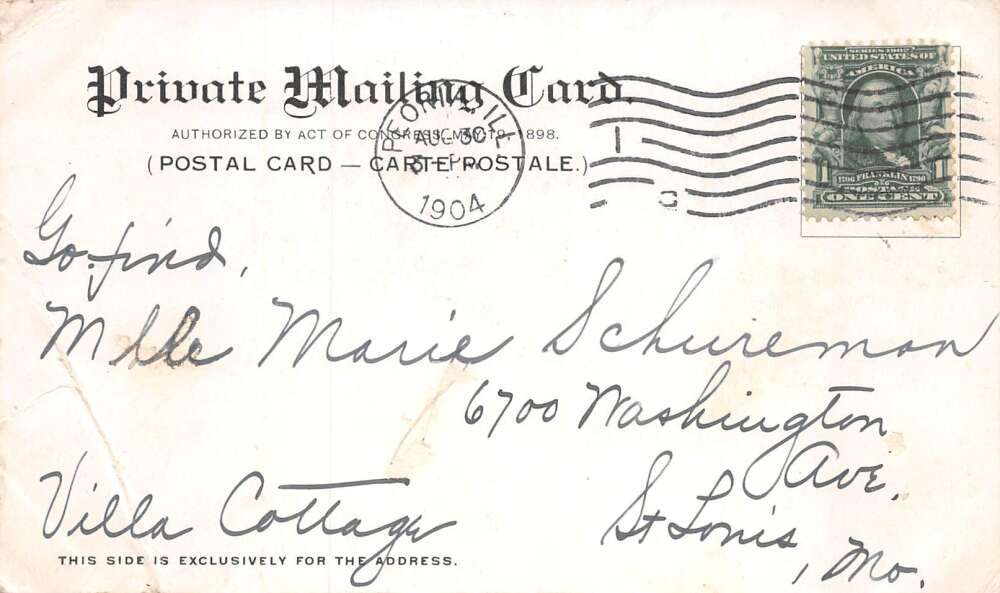 Private Mailing Card.
AUTHORIZED BY ACT OF CONGRESS, MAY 19, 1898.
(POSTAL CARD — CARTE POSTALE.)
PEORIA, ILL.
AUG 30
1904
SERIES 1902
UNITED STATES OF
AMERICA
1706 FRANKLIN 1790
POSTAGE
ONE CENT
Go find,
Mlle Marie Schureman
6700 Washington
Ave.
St Louis
, Mo.
Villa Cottage
THIS SIDE IS EXCLUSIVELY FOR THE ADDRESS.